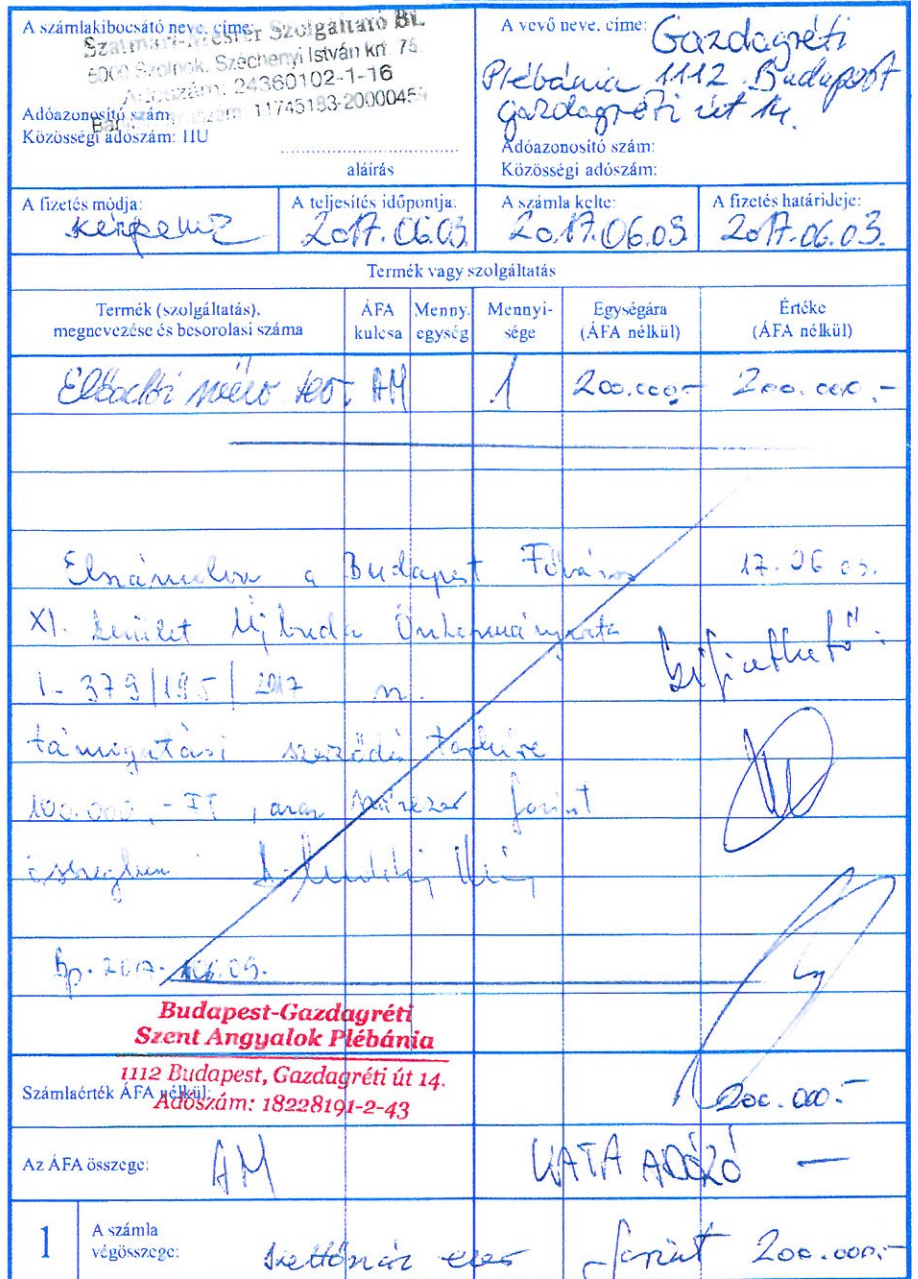 A számlakibocsátó neve, címe:
Szolgáltató Bt.
5000 Szolnok, Széchenyi István krt. 75.
Adószám: 24360102-1-16
11745183-2000045
Adóazonosító szám:
Közösségi adószám: HU
aláírás
A vevő neve, címe: Gazdagréti
Plébánia 1112 Budapest
gazdagréti út 14.
Adóazonosító szám:
Közösségi adószám:
A fizetés módja:
készpénz
A teljesítés időpontja:
2017.06.03.
A számla kelte:
2017.06.03
A fizetés határideje:
2017.06.03.
Termék vagy szolgáltatás
Termék (szolgáltatás), megnevezése és besorolási száma
ÁFA kulcsa
Menny. egység
Mennyi-sége
Egységára (ÁFA nélkül)
Értéke (ÁFA nélkül)
Előadói AM 1 200.000.- 200.000.-
Elszámolva a Budapest Főváros 17.06.03.
XI. kerület Újbuda Önkormányzata
I-379/195/2017
támogatási szerződés terhére
100.000,-FT, azaz forint
összegben
Bp. 2017.
Budapest-Gazdagréti
Szent Angyalok Plébánia
1112 Budapest, Gazdagréti út 14.
Adószám: 18228191-2-43
Számlaérték ÁFA nélkül: 200.000.-
Az ÁFA összege: AM KATA ADÓZÓ —
1 A számla végösszege: kettőszáz ezer forint 200.000.-